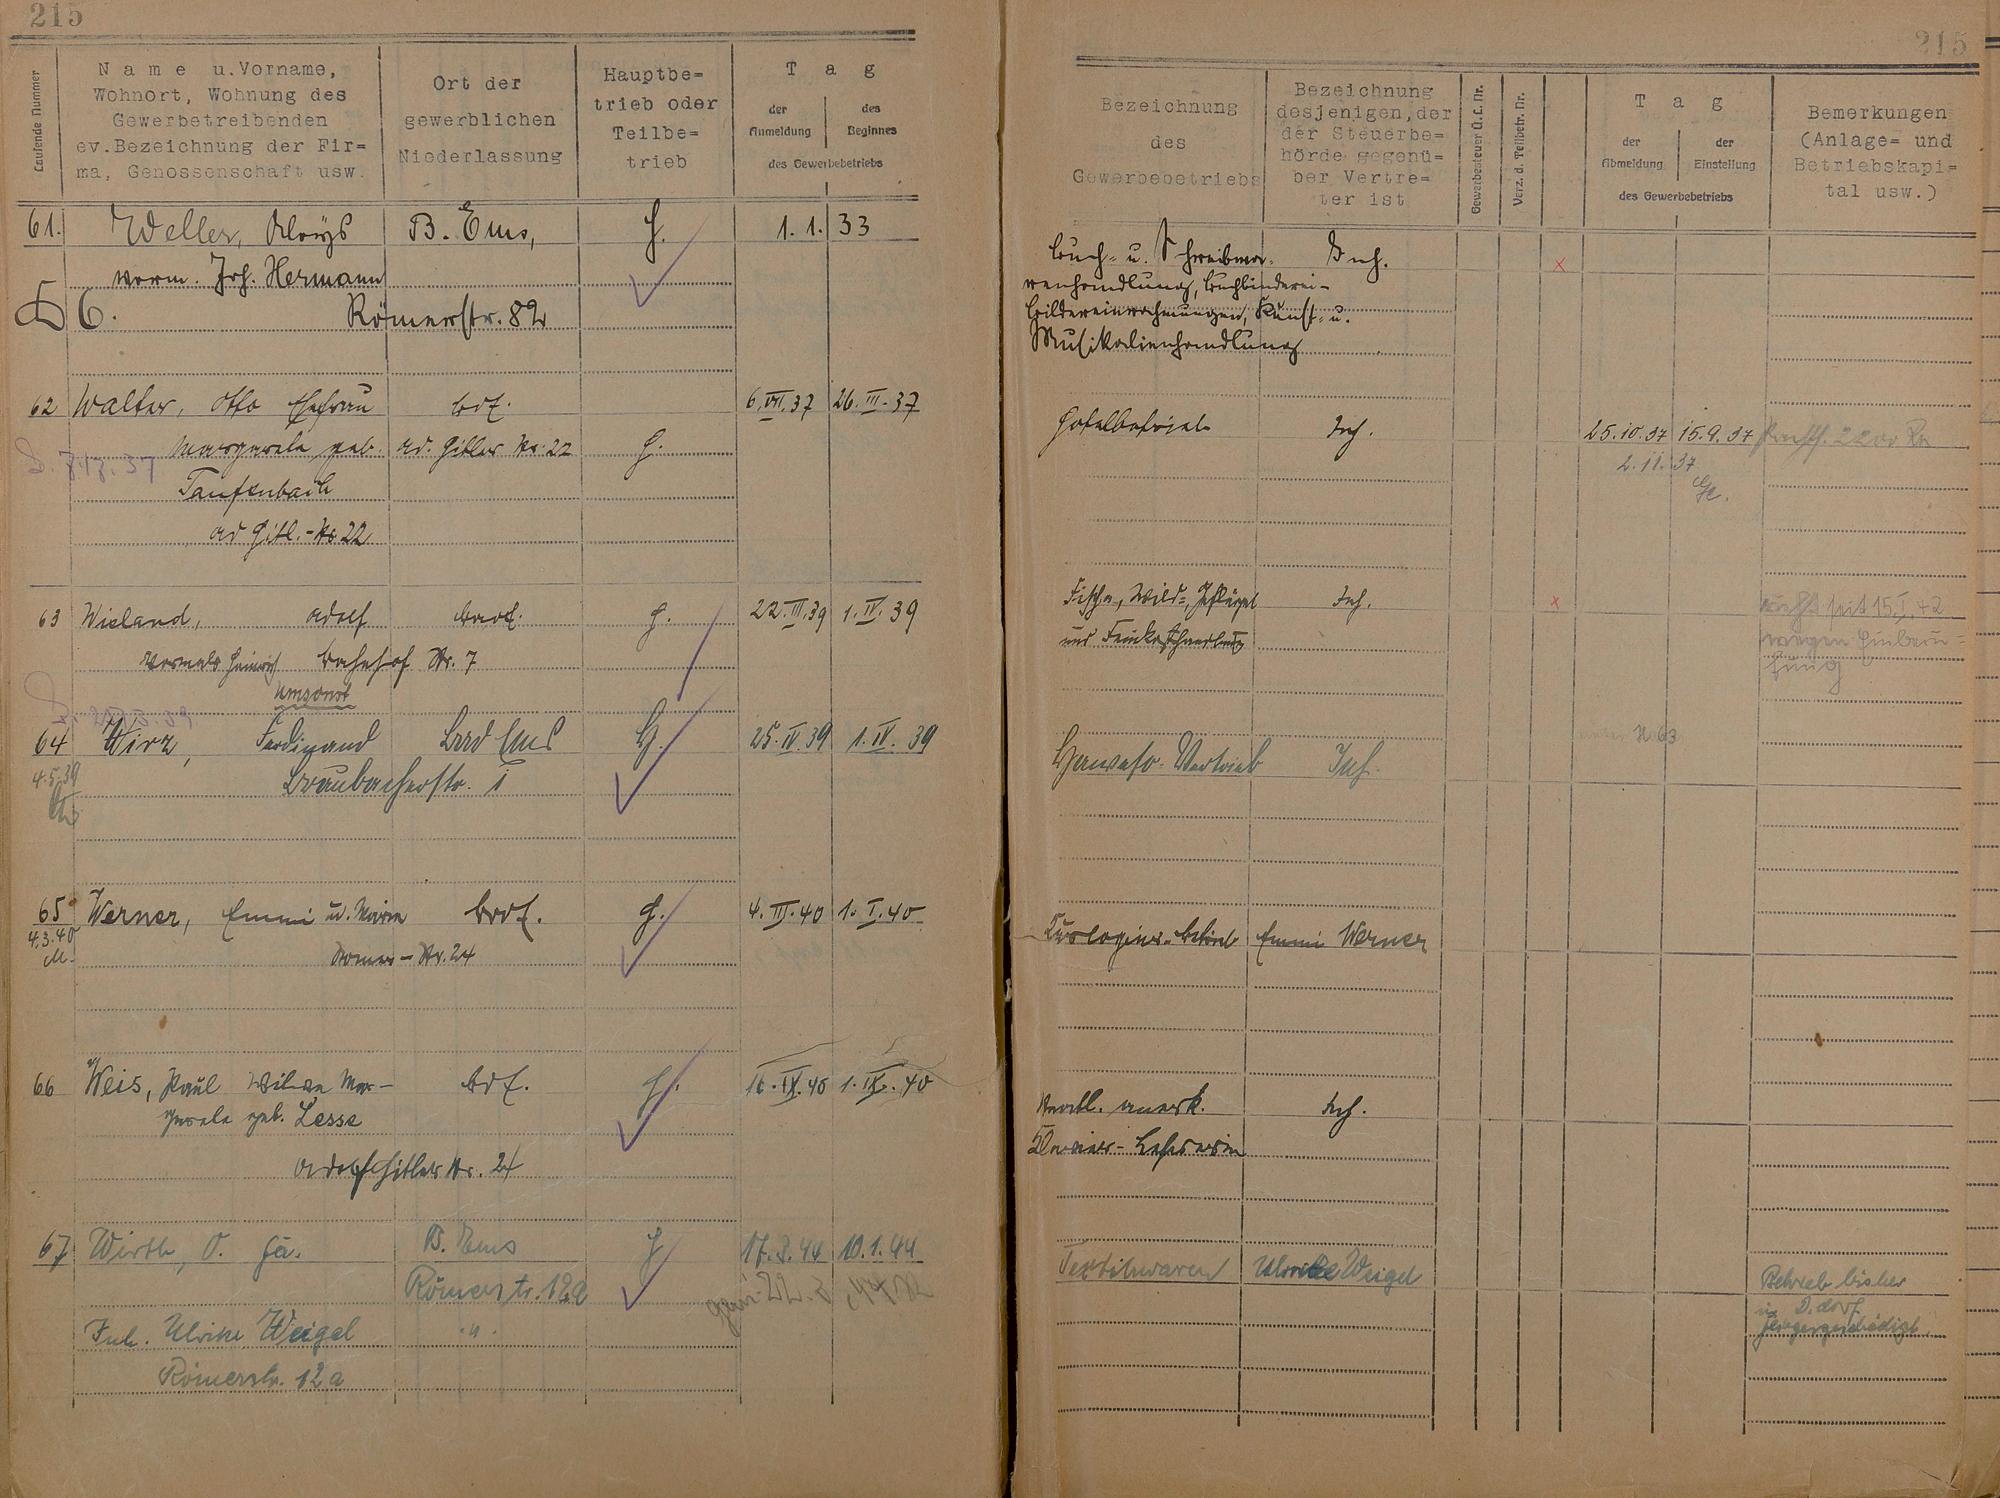 215
215
Laufende Nummer
Name u. Vorname,
Wohnort, Wohnung des
Gewerbetreibenden
ev. Bezeichnung der Fir=
ma, Genossenschaft usw.
Ort der
gewerblichen
Niederlassung
Hauptbe=
trieb oder
Teilbe=
trieb
Tag
der
Anmeldung
des
Beginnes
des Gewerbebetriebs
Bezeichnung
des
Gewerbebetriebs
Bezeichnung
desjenigen, der
der Steuerbe=
hörde gegenü=
ber Vertre=
ter ist
Gewerbesteuer Ü. L. Nr.
Verz. d. Teilbetr. Nr.
Tag
der
Abmeldung
der
Einstellung
des Gewerbebetriebs
Bemerkungen
(Anlage= und
Betriebskapi=
tal usw.)
61. Weller, Aloys B. Ems, H. 1.1.33
vorm. Jos. Hermann
6. Römerstr. 82
Buch- u. Schreibwa- Inh.
renhandlung, Buchbinderei-
Bildereinrahmungen, Kunst- u.
Musikalienhandlung
62 Walter, Otto Ehefrau 6.VII.37 26.III.37
Margarete geb. ad. Hitler Str. 22 H.
7.12.37
Taufenbach
ad Hitl.-Str. 22
Hotelbetrieb Inh. 25.10.37 15.9.37
2.11.37
63 Wieland, Adolf H. 22.III.39 1.IV.39
vormals Heinrich Bahnhof Str. 7
umsonst
Fisch-, Wild-, Geflügel Inh.
und Feinkosthandlung
seit 15.I.42
wegen Einberu=
fung
64 Wirz, Ferdinand Bad Ems H. 25.IV.39 1.IV.39
4.5.39
Braubacherstr. 1
Hawafo-Vertrieb Inh.
65 Werner, Emmi u. Maria H. 4.III.40 1.I.40
4.3.40
M.
Römer-Str. 24
Kurlogier-betrieb Emmi Werner
66 Weis, Paul Witwe Mar-
garete geb. Lesse
H. 16.IX.40 1.IX.40
Adolf Hitler Str. 24
Staatl. anerk. Inh.
Klavier-Lehrerin
67 Wirth, O. Fa. B. Ems H 17.3.44 10.1.44
Römerstr. 12a
Inh. Ulrike Weigel "
Römerstr. 12a
Textilwaren Ulrike Weigel
Betrieb bisher
in D.dorf
fliegergeschädigt.